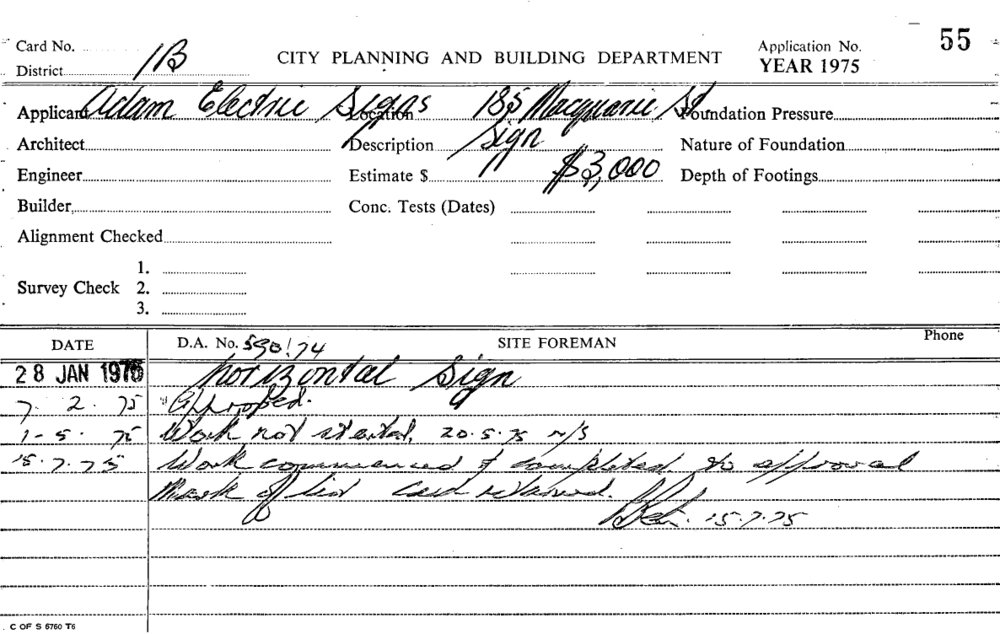 Card No.
District 1B
CITY PLANNING AND BUILDING DEPARTMENT
Application No. 55
YEAR 1975
Applicant Adam Electric Signs Location 185 Macquarie St Foundation Pressure
Architect Description Sign Nature of Foundation
Engineer Estimate $ $3,000 Depth of Footings
Builder Conc. Tests (Dates)
Alignment Checked
1.
Survey Check 2.
3.
DATE D.A. No. 590/74 SITE FOREMAN Phone
28 JAN 1975 Horizontal Sign
7. 2. 75 Approved.
1-5. 75 Work not started. 20.5.75 N/S
15.7.75 Work commenced & completed to approval
Mark off list card returned.
15.7.75
C OF S 6760 T6